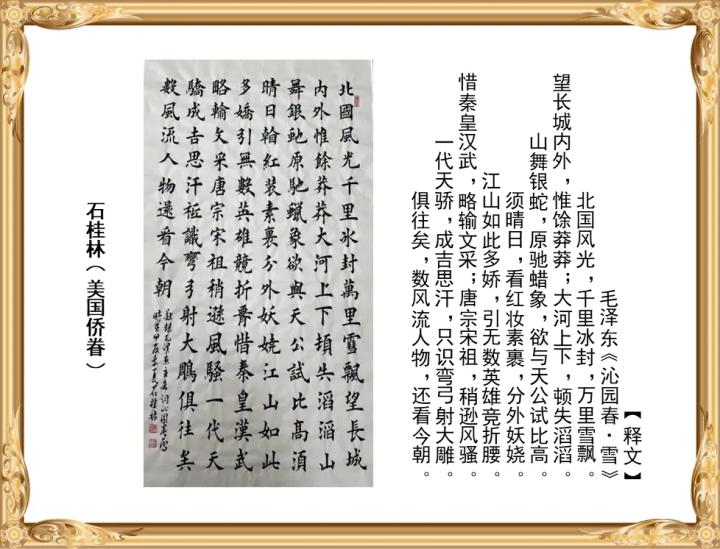 【释文】
毛泽东《沁园春·雪》
北国风光，千里冰封，万里雪飘。
望长城内外，惟馀莽莽；大河上下，顿失滔滔。
山舞银蛇，原驰蜡象，欲与天公试比高。
须晴日，看红妆素裹，分外妖娆。
江山如此多娇，引无数英雄竞折腰。
惜秦皇汉武，略输文采；唐宗宋祖，稍逊风骚。
一代天骄，成吉思汗，只识弯弓射大雕。
俱往矣，数风流人物，还看今朝。
北國風光千里冰封萬里雪飄望長城
内外惟餘莽莽大河上下頓失滔滔山
舞銀蛇原馳蠟象欲與天公試比高須
晴日看紅装素裹分外妖娆江山如此
多嬌引無數英雄競折腰惜秦皇漢武
略輸文采唐宗宋祖稍遜風騷一代天
驕成吉思汗祗識彎弓射大鵰俱往矣
數風流人物還看今朝
石桂林（美国侨眷）